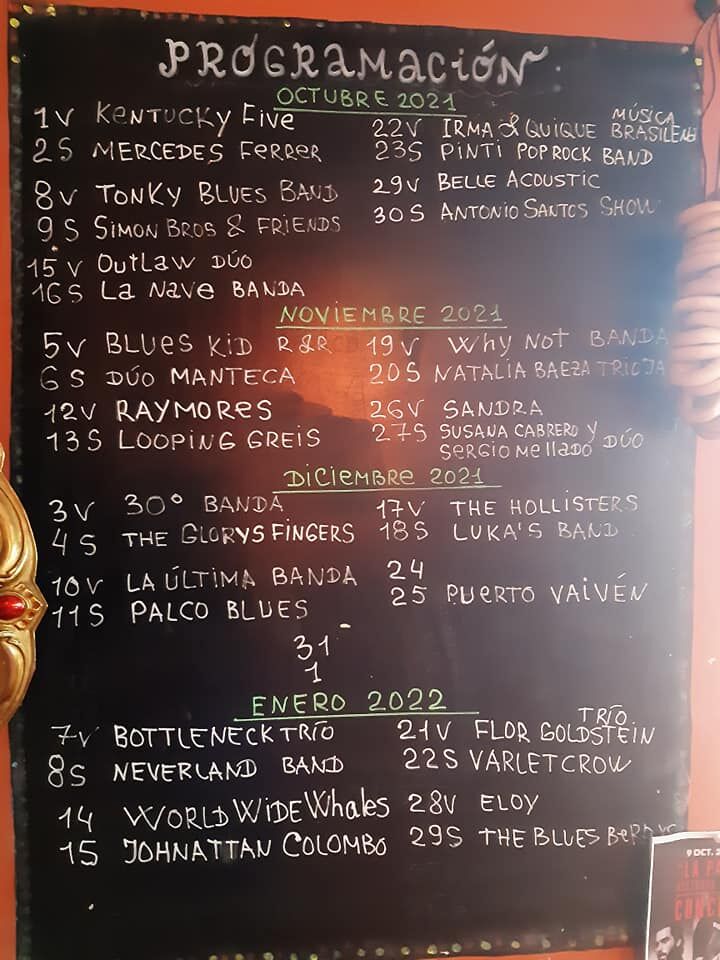 PROGRAMACIÓN
OCTUBRE 2021
1V KENTUCKY FIVE
2S MERCEDES FERRER
8V TONKY BLUES BAND
9S SIMON BROS & FRIENDS
15V OUTLAW DÚO
16S LA NAVE BANDA
22V IRMA & QUIQUE MÚSICA BRASILEÑA
23S PINTI POPROCK BAND
29V BELLE ACOUSTIC
30S ANTONIO SANTOS SHOW
NOVIEMBRE 2021
5V BLUES KID R&R
6S DÚO MANTECA
12V RAYMORES
13S LOOPING GREIS
19V WHY NOT BANDA
20S NATALIA BAEZA TRIO JA
26V SANDRA
27S SUSANA CABRERO Y
SERGIO MELLADO DÚO
DICIEMBRE 2021
3V 30º BANDA
4S THE GLORYS FINGERS
10V LA ÚLTIMA BANDA
11S PALCO BLUES
17V THE HOLLISTERS
18S LUKA'S BAND
24
25 PUERTO VAIVÉN
31
1
ENERO 2022
7V BOTTLENECK TRÍO
8S NEVERLAND BAND
14 WORLD WIDE WHALES
15 JOHNATTAN COLOMBO
21V FLOR GOLDSTEIN TRÍO
22S VARLETCROW
28V ELOY
29S THE BLUES
9 OCT.
LA